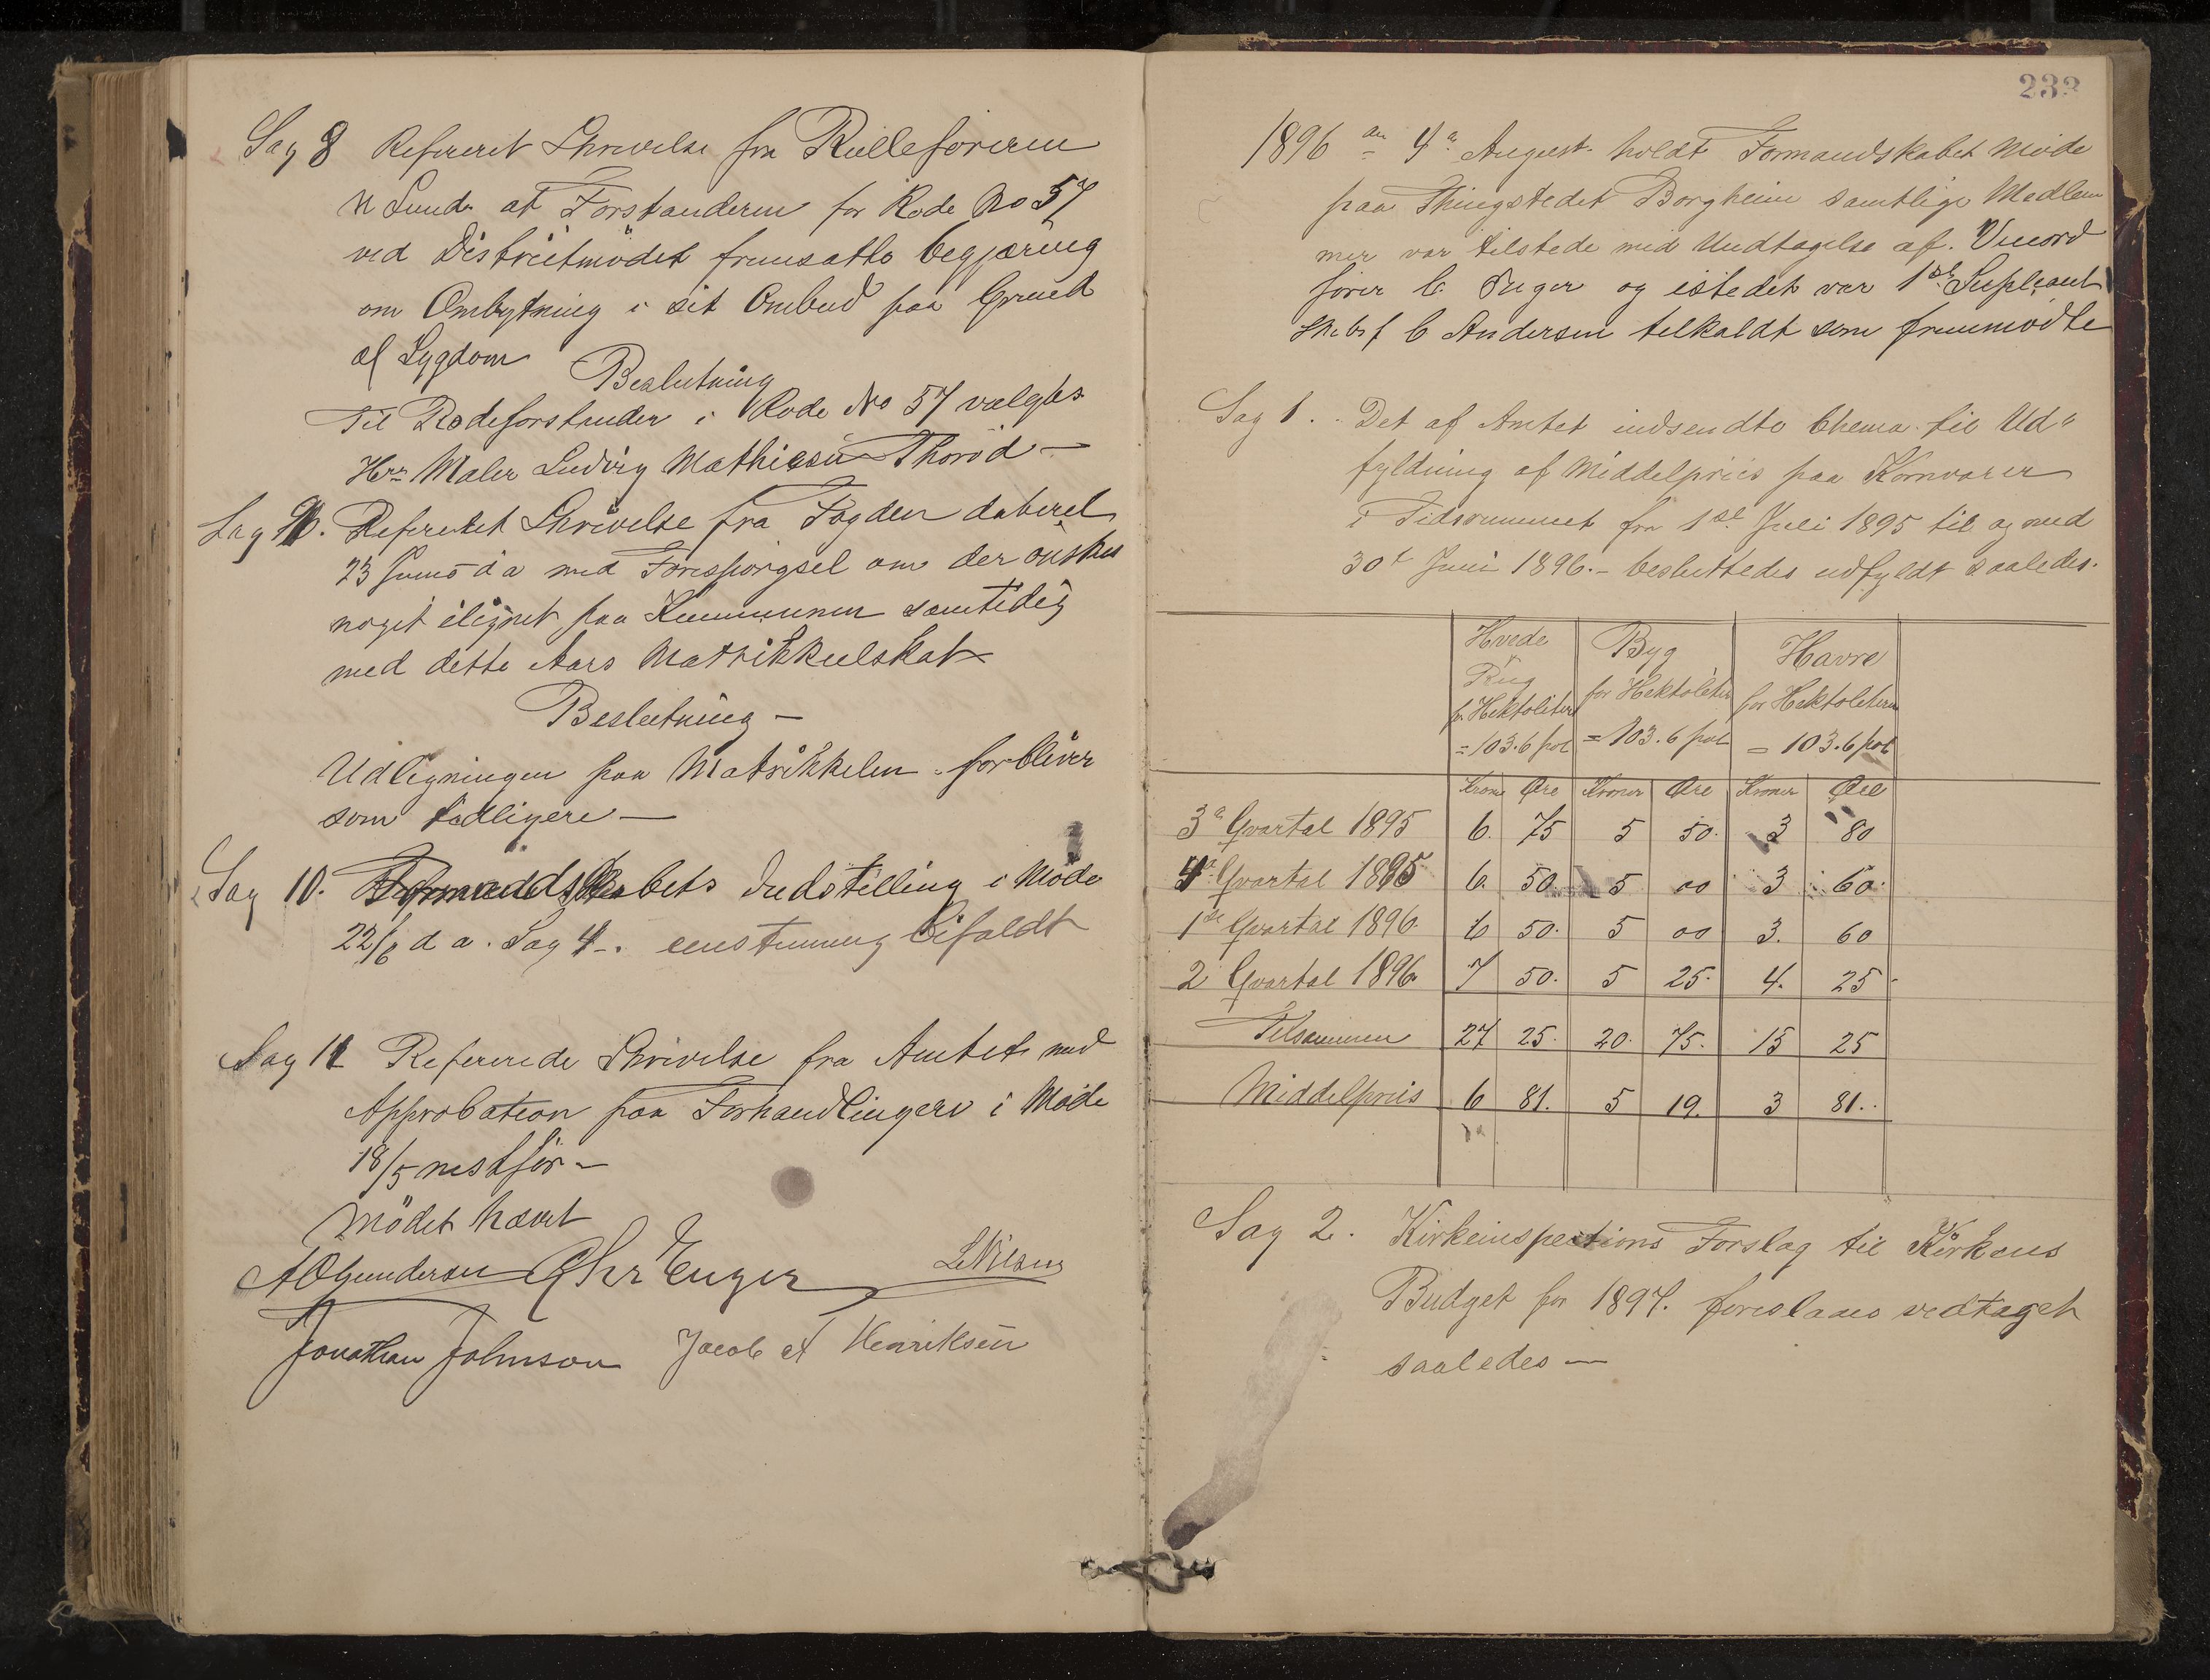 Sag 8 Refereret Skrivelse fra Rulleføreren
N Lund at Forstanderen for Rode No 57
ved Districtmödet fremsatte begjæring
om Ombytning i sit Ombud paa Grund
af Sygdom
Beslutning
Til Rodeforstander i Rode No 57 valgtes
Hrr Maler Ludvig Mathiesen Thoröd —
Sag 9. Refereret Skrivelse fra Fogden dateret
23 Juni d a med Forespørgsel om der önskes
noget ilignet paa Kommunen samtidig
med dette Aars Matrikkulskat
Beslutning —
Udligningen paa Matrikkelen forbliver
som tidligere —
Sag 10. Formandskabets Indstilling i Möde
22/6 d a. Sag 4. eenstemmig bifaldt
Sag 11 Refererede Skrivelse fra Amtet med
Approbation paa Forhandlingerv i Möde
18/5 næstför —
Mödet hævet
A O Gundersen Chr Enger L Nilsen
Jonathan Johnson Jacob A Henriksen
233
1896 den 4de August holdt Formandskabet Möde
paa Thingstedet Borgheim samtlige Medlem
mer var tilstede med Undtagelse af Viceord
förer C. Enger og istedet var 1ste Supleant
C Andersen tilkaldt som fremmödte
Sag 1. Det af Amtet indsendte Chema til Ud"
fyldning af Middelpriis paa Kornvarer
i Tidsrummet fra 1st Juli 1895 til og med
30t Juni 1896. — besluttedes udfyldt saaledes.
Hvede Byg Havre
Rug
for Hektoliter for Hektoliter for Hektoliteren
= 103.6 pot = 103.6 pot = 103.6 pot
Kroner Øre Kroner Øre Kroner Øre
3de Qvartal 1895 6. 75 5 50. 3 80
4de Qvartal 1895 6. 50. 5 00 3 60.
1ste Qvartal 1896. 6 50. 5 00 3. 60
2 Qvartal 1896. 7 50. 5 25. 4. 25
Tilsammen 27 25. 20. 75. 15 25
Middelpriis 6 81. 5 19. 3 81.
Sag 2. Kirkeinspections Forslag til Kirkens
Budget for 1897. foreslaaes vedtaget
saaledes —